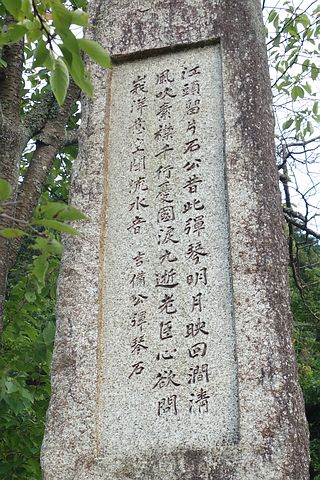 江頭留片石公昔此彈琴明月映回澗清
風吹素襟千行憂國涙九逝老臣心欲問
峩洋意空聞流水音 吉備公彈琴石